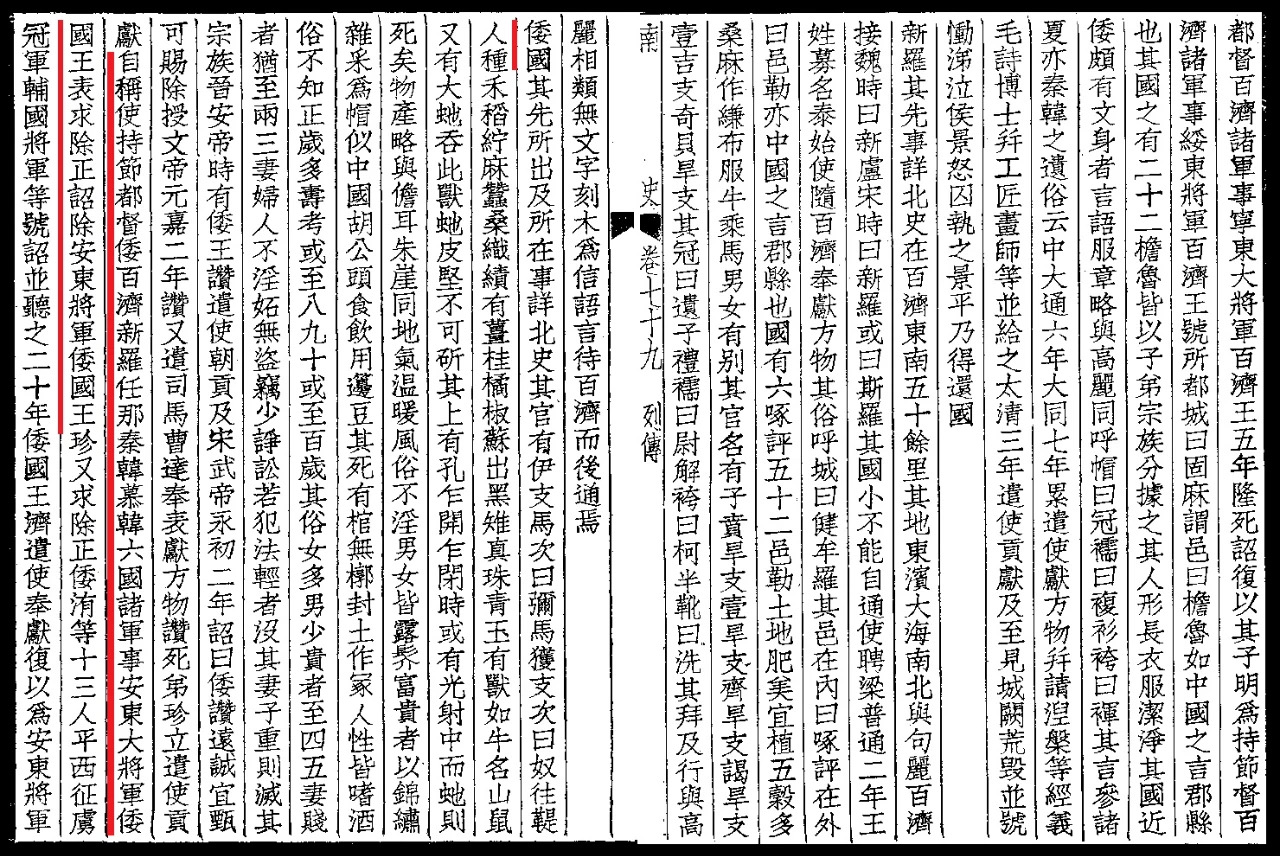 都督百濟諸軍事寧東大將軍百濟王五年隆死詔復以其子明爲持節督百
濟諸軍事綏東將軍百濟王號所都城曰固麻謂邑曰檐魯如中國之言郡縣
也其國之有二十二檐魯皆以子弟宗族分據之其人形長衣服潔淨其國近
倭頗有文身者言語服章略與高麗同呼帽曰冠襦曰複衫袴曰褌其言參諸
夏亦秦韓之遺俗云中大通六年大同七年累遣使獻方物幷請涅槃等經義
毛詩博士幷工匠畫師等並給之太清三年遣使貢獻及至見城闕荒毀並號
慟涕泣侯景怒囚執之景平乃得還國
新羅其先事詳北史在百濟東南五十餘里其地東濱大海南北與句麗百濟
接魏時曰新盧宋時曰新羅或曰斯羅其國小不能自通使聘梁普通二年王
姓募名泰始使隨百濟奉獻方物其俗呼城曰健牟羅其邑在內曰啄評在外
曰邑勒亦中國之言郡縣也國有六啄評五十二邑勒土地肥美宜植五穀多
桑麻作縑布服牛乘馬男女有別其官名有子賁旱支壹旱支齊旱支謁旱支
壹吉支奇貝旱支其冠曰遺子禮襦曰尉解袴曰柯半靴曰洗其拜及行與高
南 史 卷七十九 列傳
麗相類無文字刻木爲信語言待百濟而後通焉
倭國其先所出及所在事詳北史其官有伊支馬次曰彌馬獲支次曰奴往鞮
人種禾稻紵麻蠶桑織績有薑桂橘椒蘇出黑雉真珠青玉有獸如牛名山鼠
又有大虵吞此獸虵皮堅不可斫其上有孔乍開乍閉時或有光射中而虵則
死矣物產略與儋耳朱崖同地氣温暖風俗不淫男女皆露髻富貴者以錦繡
雜采爲帽似中國胡公頭食飲用籩豆其死有棺無槨封土作冢人性皆嗜酒
俗不知正歲多壽考或至八九十或至百歲其俗女多男少貴者至四五妻賤
者猶至兩三妻婦人不淫妬無盜竊少諍訟若犯法輕者沒其妻子重則滅其
宗族晉安帝時有倭王讚遣使朝貢及宋武帝永初二年詔曰倭讚遠誠宜甄
可賜除授文帝元嘉二年讚又遣司馬曹達奉表獻方物讚死弟珍立遣使貢
獻自稱使持節都督倭百濟新羅任那秦韓慕韓六國諸軍事安東大將軍倭
國王表求除正詔除安東將軍倭國王珍又求除正倭洧等十三人平西征虜
冠軍輔國將軍等號詔並聽之二十年倭國王濟遣使奉獻復以爲安東將軍